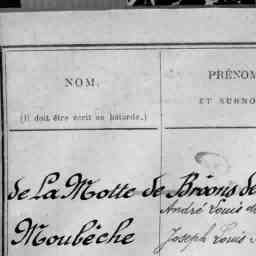 NOM.
(Il doit être écrit en bâtarde.)
PRÉNOM
ET SURNO
de La Motte de Bröons de
Moubêche
André Louis d
Joseph Louis